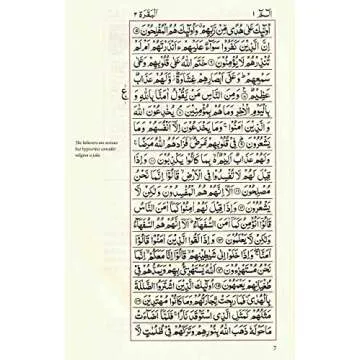 الٓمّٓ ١
البقرة ٢
اُولٰٓئِكَ عَلٰى هُدًى مِّنْ رَّبِّهِمْ وَاُولٰٓئِكَ هُمُ الْمُفْلِحُوْنَ
اِنَّ الَّذِيْنَ كَفَرُوْا سَوَآءٌ عَلَيْهِمْ ءَاَنْذَرْتَهُمْ اَمْ لَمْ
تُنْذِرْهُمْ لَا يُؤْمِنُوْنَ خَتَمَ اللّٰهُ عَلٰى قُلُوْبِهِمْ وَعَلٰى
سَمْعِهِمْ وَعَلٰٓى اَبْصَارِهِمْ غِشَاوَةٌ وَّلَهُمْ عَذَابٌ
عَظِيْمٌ وَمِنَ النَّاسِ مَنْ يَّقُوْلُ اٰمَنَّا بِاللّٰهِ وَ
بِالْيَوْمِ الْاٰخِرِ وَمَا هُمْ بِمُؤْمِنِيْنَ يُخٰدِعُوْنَ اللّٰهَ
وَالَّذِيْنَ اٰمَنُوْا وَمَا يَخْدَعُوْنَ اِلَّآ اَنْفُسَهُمْ وَمَا
يَشْعُرُوْنَ فِيْ قُلُوْبِهِمْ مَّرَضٌ فَزَادَهُمُ اللّٰهُ مَرَضًا
وَلَهُمْ عَذَابٌ اَلِيْمٌ بِمَا كَانُوْا يَكْذِبُوْنَ وَاِذَا
قِيْلَ لَهُمْ لَا تُفْسِدُوْا فِى الْاَرْضِ قَالُوْٓا اِنَّمَا نَحْنُ
مُصْلِحُوْنَ اَلَآ اِنَّهُمْ هُمُ الْمُفْسِدُوْنَ وَلٰكِنْ لَّا
يَشْعُرُوْنَ وَاِذَا قِيْلَ لَهُمْ اٰمِنُوْا كَمَآ اٰمَنَ النَّاسُ
قَالُوْٓا اَنُؤْمِنُ كَمَآ اٰمَنَ السُّفَهَآءُ اَلَآ اِنَّهُمْ هُمُ السُّفَهَآءُ
وَلٰكِنْ لَّا يَعْلَمُوْنَ وَاِذَا لَقُوا الَّذِيْنَ اٰمَنُوْا قَالُوْٓا
اٰمَنَّا وَاِذَا خَلَوْا اِلٰى شَيٰطِيْنِهِمْ قَالُوْٓا اِنَّا مَعَكُمْ اِنَّمَا
نَحْنُ مُسْتَهْزِءُوْنَ اَللّٰهُ يَسْتَهْزِئُ بِهِمْ وَيَمُدُّهُمْ فِيْ
طُغْيَانِهِمْ يَعْمَهُوْنَ اُولٰٓئِكَ الَّذِيْنَ اشْتَرَوُا الضَّلٰلَةَ
بِالْهُدٰى فَمَا رَبِحَتْ تِّجَارَتُهُمْ وَمَا كَانُوْا مُهْتَدِيْنَ
مَثَلُهُمْ كَمَثَلِ الَّذِى اسْتَوْقَدَ نَارًا فَلَمَّآ اَضَآءَتْ
مَا حَوْلَهٗ ذَهَبَ اللّٰهُ بِنُوْرِهِمْ وَتَرَكَهُمْ فِيْ ظُلُمٰتٍ لَّا
ع
The believers are serious
but hypocrites consider
religion a joke
7